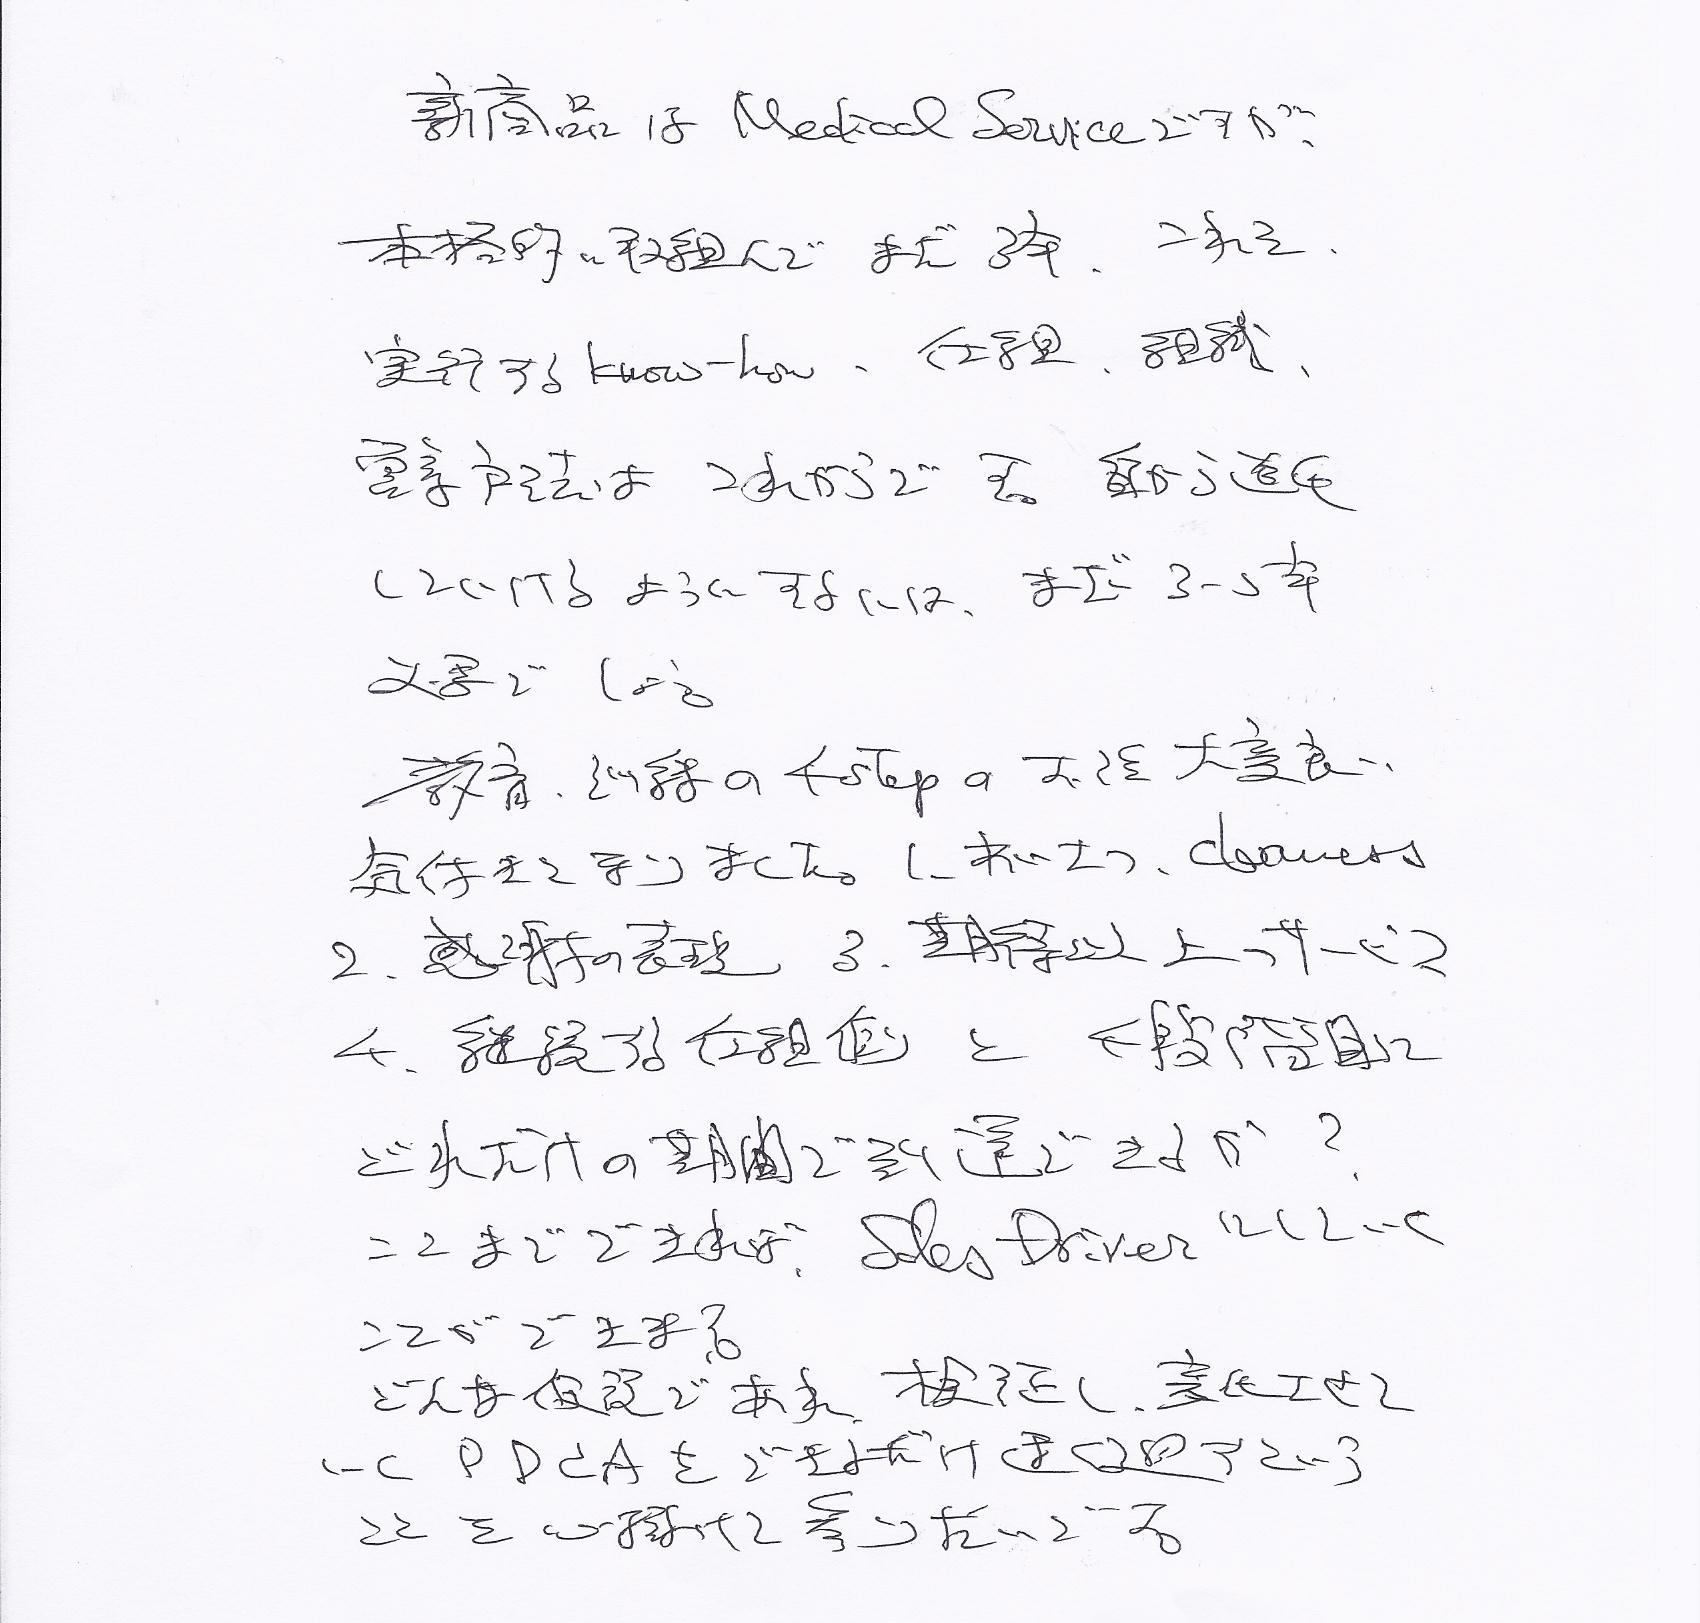 新商品は Medical Serviceですが、
本格的に取組んで まだ 3年、これを、
実行する know-how、仕組、組織、
営業方法は これからです。自から進化
していけるようにするには、まだ 3-5年
必要でしょう
教育、訓練の 4 stepの 不作 大変良い
気付きと なりました。1.あいさつ、cleaness
2. 感謝の表現 3. 期待以上のサービス
4. 継続する仕組作り と 4段階目に
どれだけの期間で到達できるか?
ここまでできれば、Sales Driver にしていく
ことができまする
どんな仮説であれ、検証し、変化させて
いく PDCAをできるだけ速く回すという
ことを心掛けて参りたいです